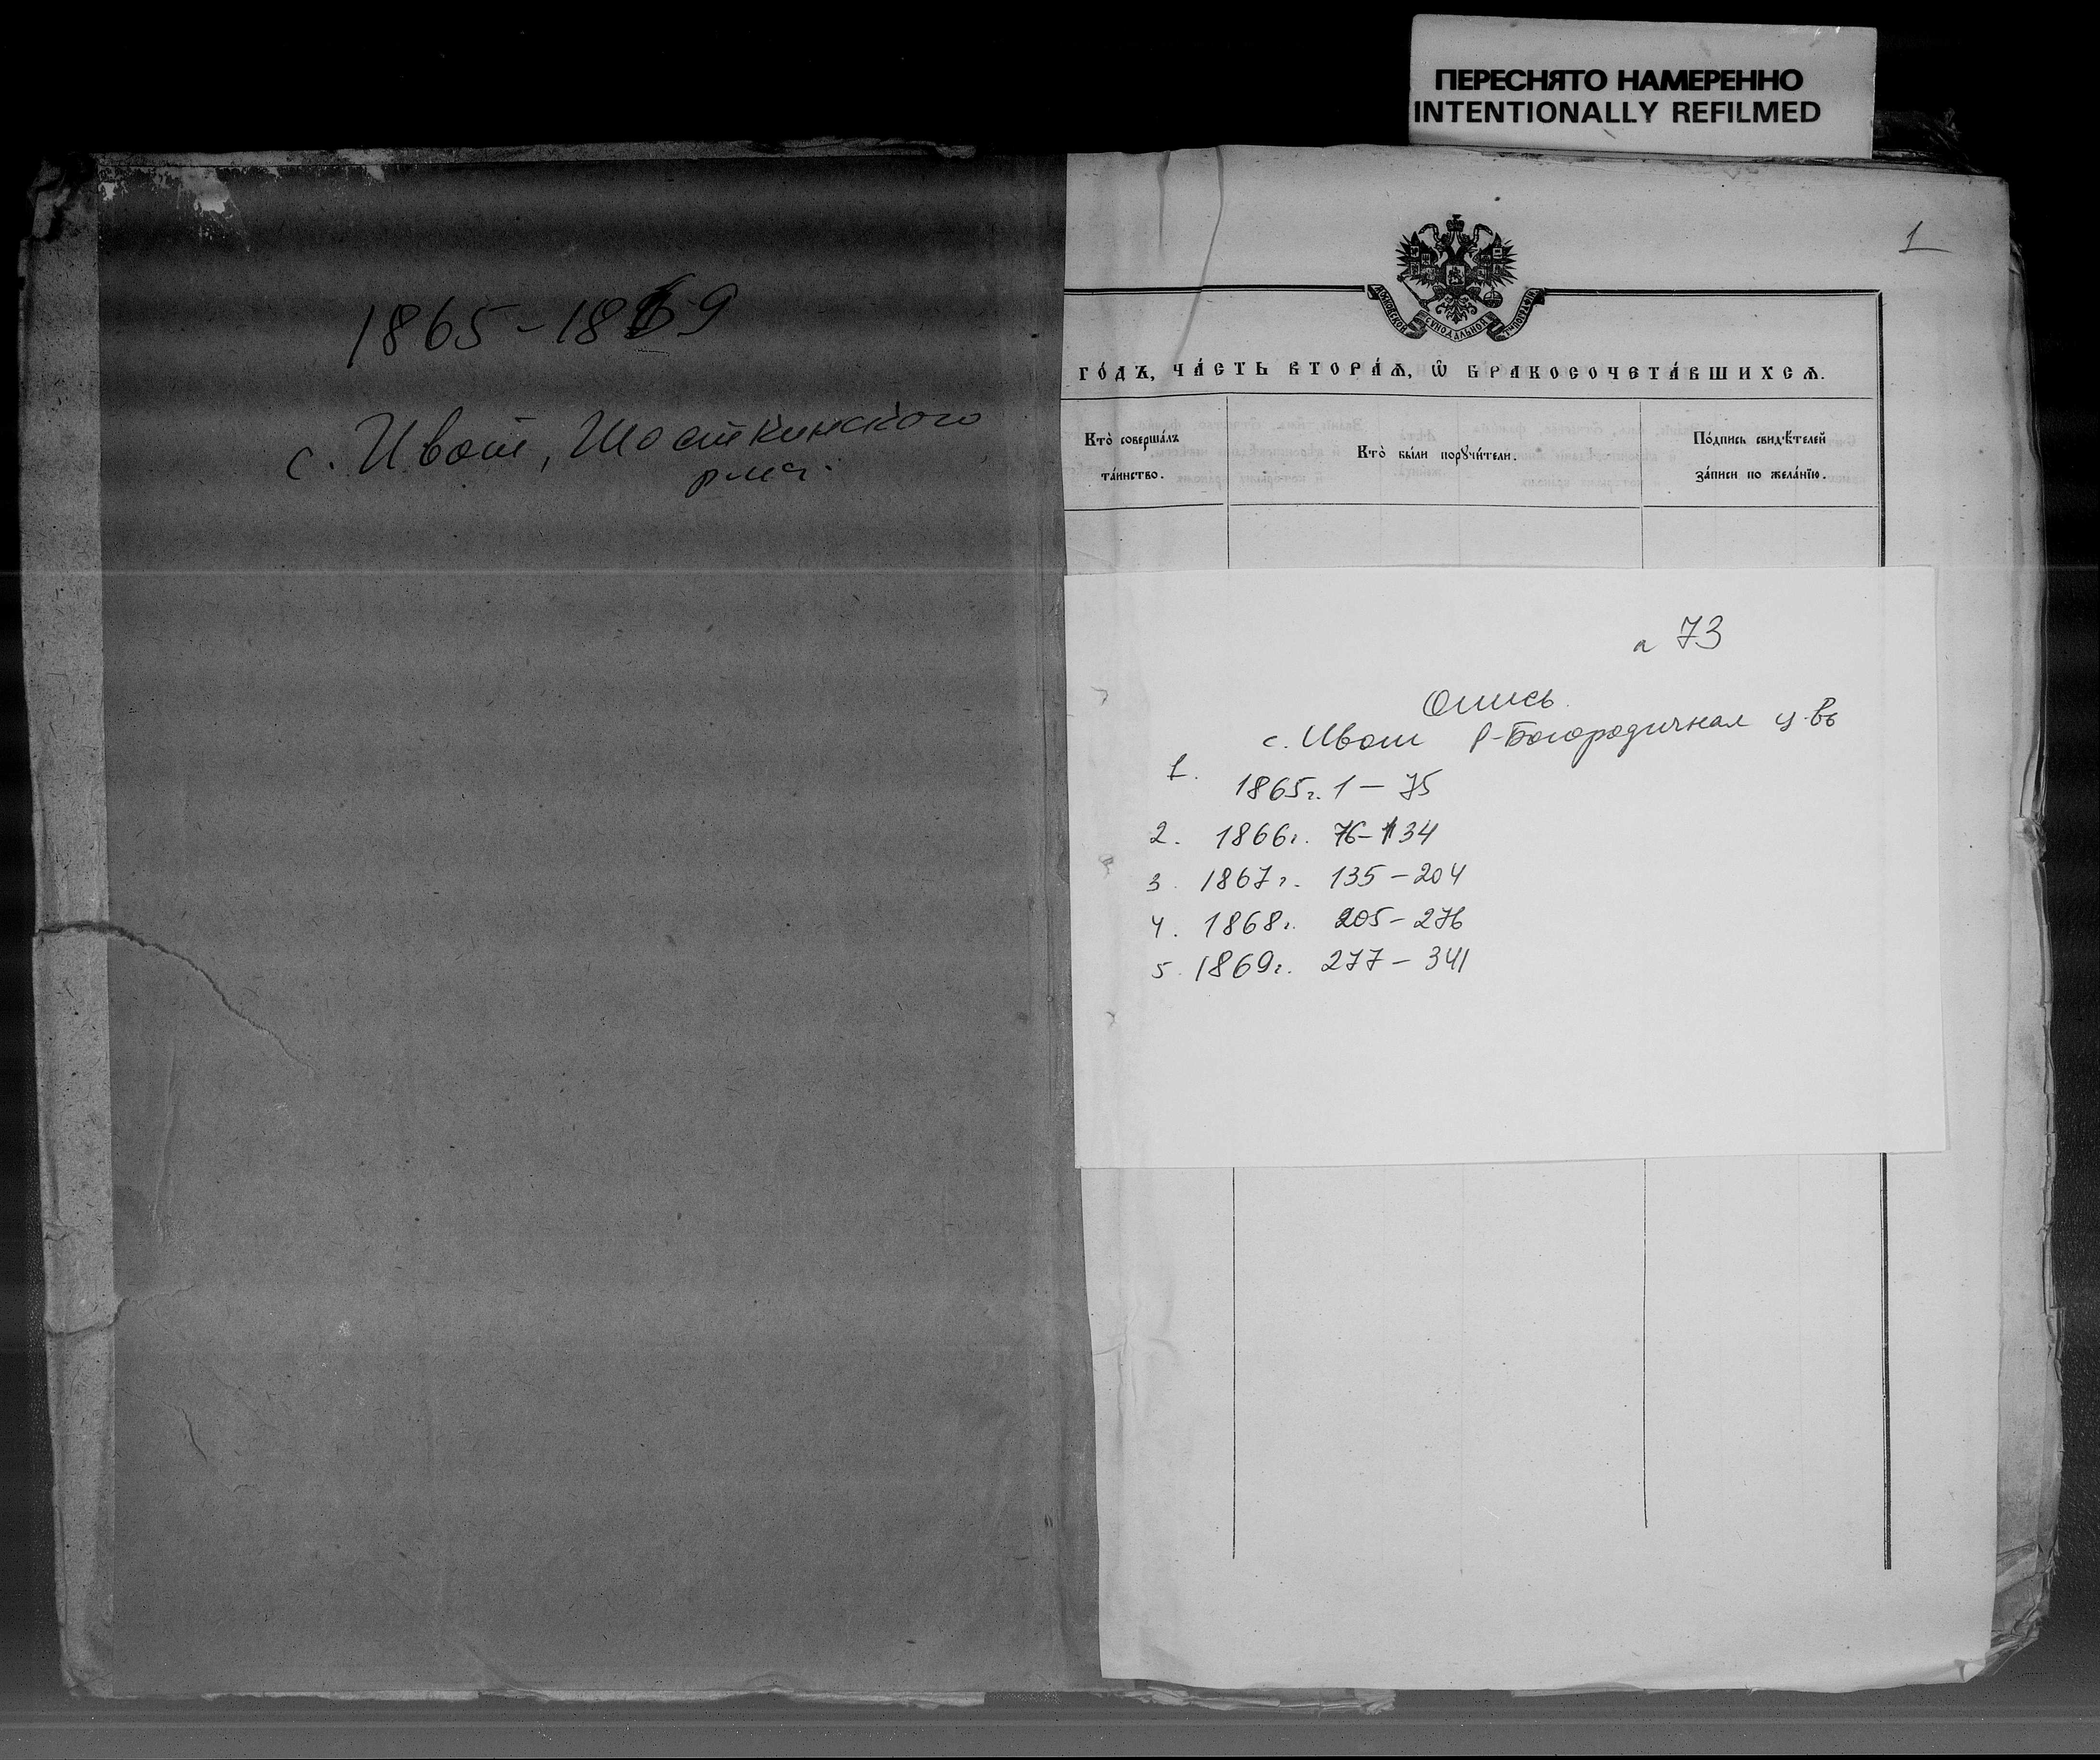 ПЕРЕСНЯТО НАМЕРЕННО
INTENTIONALLY REFILMED
1865-1869
с. Ивот, Шосткинского
р-на.
1
МОСКОВСКОЙ СѴНОДАЛЬНОЙ ТИПОГРАФІИ
ГО́ДЪ, ЧА́СТЬ ВТОРА́Ѧ, Ѽ БРАКОСОЧЕТА́ВШИХСѦ.
Кто̀ соверша́лъ
та́инство.
Кто̀ бы́ли порꙋчи́тели.
По́дпись свид̾ѣтелей
за́писи по жела́нїю.
73
Опись
с. Ивот Р-Богородичная ц-вь
1.
1865г. 1 – 75
2. 1866г. 76-134
3. 1867г. 135-204
4. 1868г. 205-276
5. 1869г. 277-341